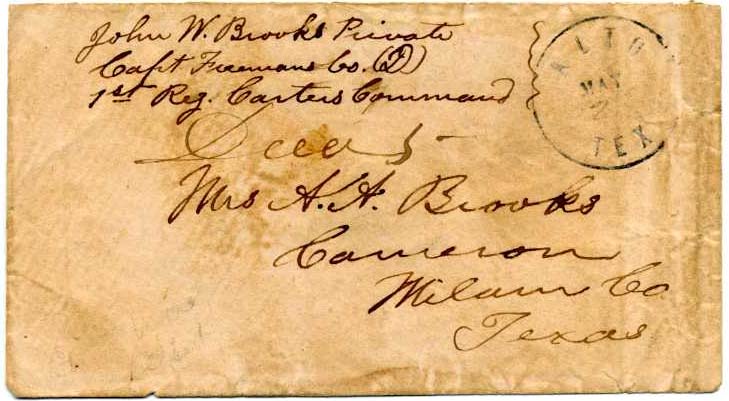 John W. Brooks Private
Capt Freemans Co. (D)
1st Reg. Carters Command
ALTO
MAY
2
TEX
Due 5
Mrs A. A. Brooks
Cameron
Milam Co
Texas